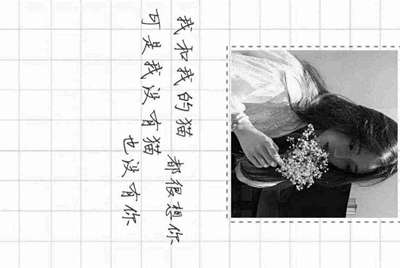 我和我的猫
都很想你
可是我没有猫
也没有你